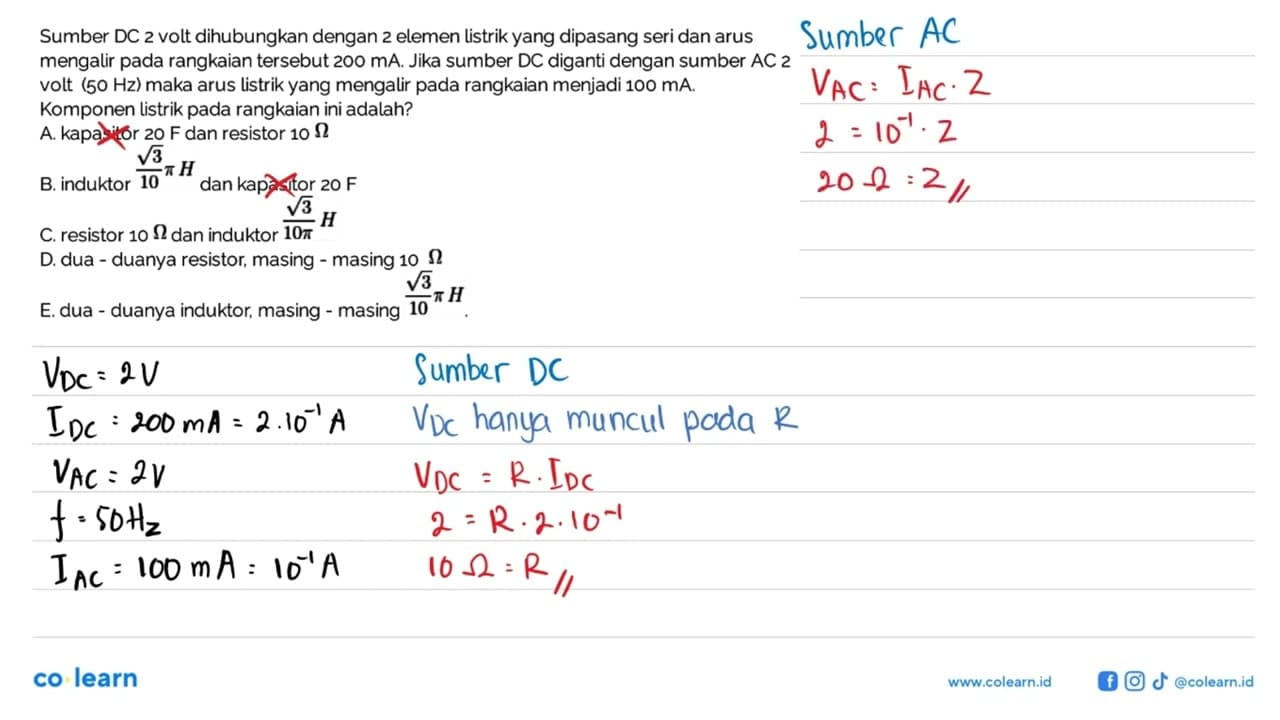 Sumber DC 2 volt dihubungkan dengan 2 elemen listrik yang dipasang seri dan arus
mengalir pada rangkaian tersebut 200 mA. Jika sumber DC diganti dengan sumber AC 2
volt (50 Hz) maka arus listrik yang mengalir pada rangkaian menjadi 100 mA.
Komponen listrik pada rangkaian ini adalah?
A. kapasitor 20 F dan resistor 10 Ω
B. induktor √3/10 π H dan kapasitor 20 F
C. resistor 10 Ω dan induktor √3/10π H
D. dua - duanya resistor, masing - masing 10 Ω
E. dua - duanya induktor, masing - masing √3/10 π H.
Sumber AC
V_AC = I_AC . Z
2 = 10^-1 . Z
20 Ω = Z //
V_DC = 2V
I_DC = 200 mA = 2.10^-1 A
V_AC = 2V
f = 50Hz
I_AC = 100 mA = 10^-1 A
Sumber DC
V_DC hanya muncul pada R
V_DC = R . I_DC
2 = R . 2 . 10^-1
10 Ω = R //
co learn
www.colearn.id
@colearn.id